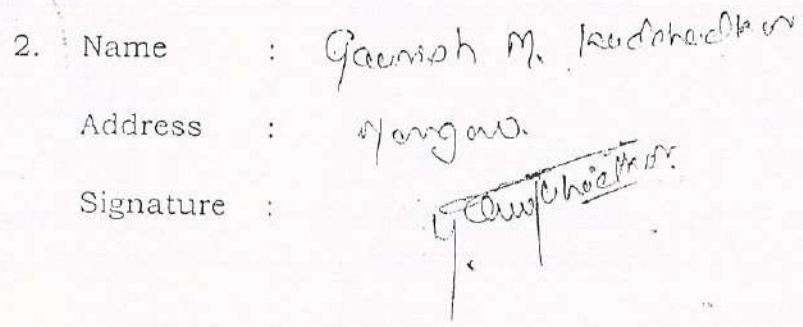 2. Name : Gaurish M. Kudchadkar
Address : Margao.
Signature :